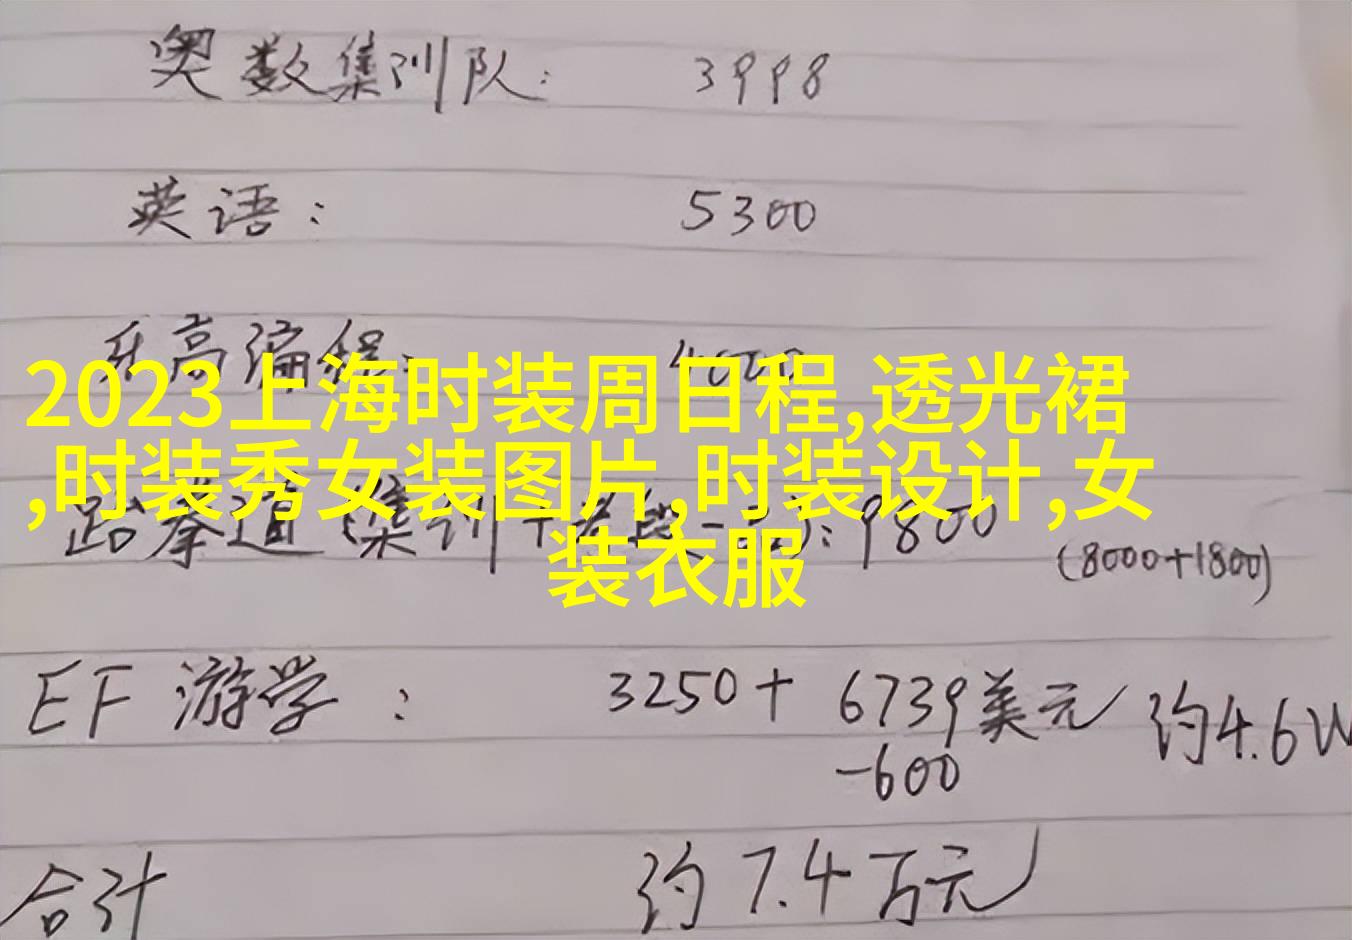 奥数集训队: 3998
英语: 5300
乐高编程: 4000
2023上海时装周日程,透光裙
,时装秀女装图片,时装设计,女
装衣服
跆拳道(集训+考段一段): 9800
(8000+1800)
EF 游学: 3250+ 6739美元 约4.6W
-600
合计 约7.4万元